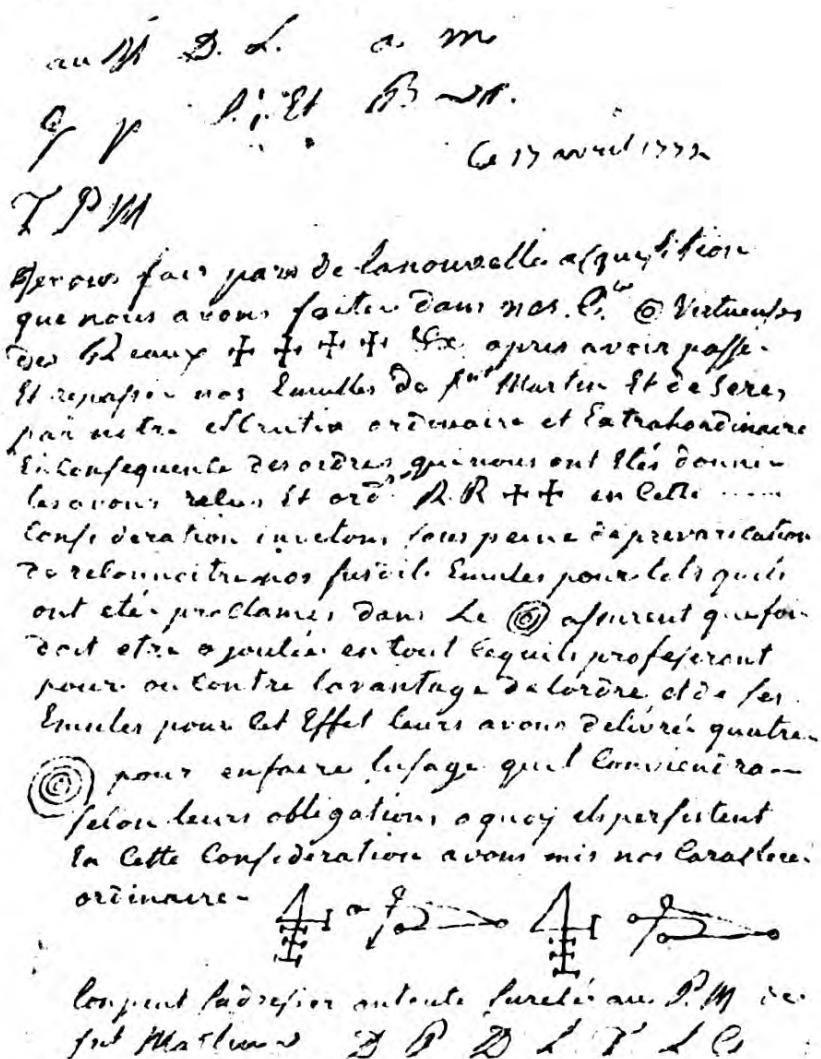 au M D. L. a. m
G P S. Et B
Ce 17 avril 1772
T P M
Je vous fais pars de la nouvelle acquesition
que nous avons faite dans nos. C. Vertueuses
des R eaux ✠ ✠ ✠ ✠ apres avoir passé
Et repasser nos Emulles De st Martin Et de Seres
par notre escrutin ordinaire et Extrahordinaire
En Consequence des ordres que nous ont Etés donné
les avons relus Et ord R. R ✠ ✠ en Cette
Consideration invitons sous peine de prevarication
De reconnoitre nos susdit Emules pour tels quils
ont été proclamés dans Le assurent que foi
doit etre ajoutée en tout Ce quils professeront
pour ou Contre lavantage de lordre et de ses
Emules pour Cet Effet leurs avons delivré quatre
pour en faire lusage quil Conviendra
selon leurs obligations a quoy ils persistent
En Cette Consideration avons mis nos Caractere
ordinaire
Lon peut sadresser en toute sureté au P. M de
st Martin D P D L T L C